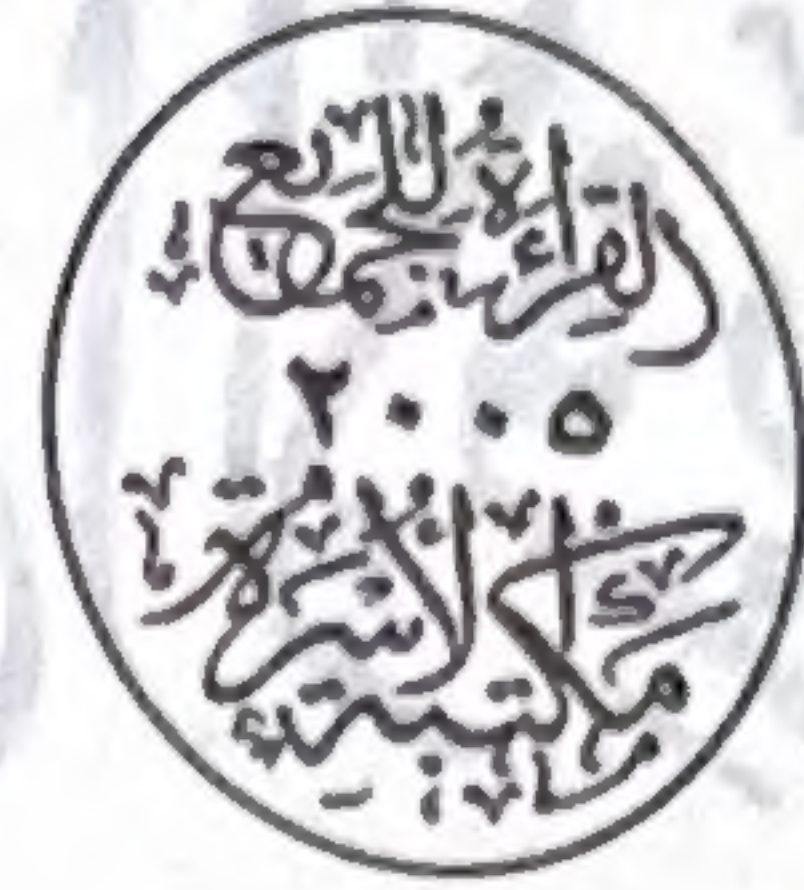 القراءة للجميع
٢٠٠٥
مكتبة الأسرة